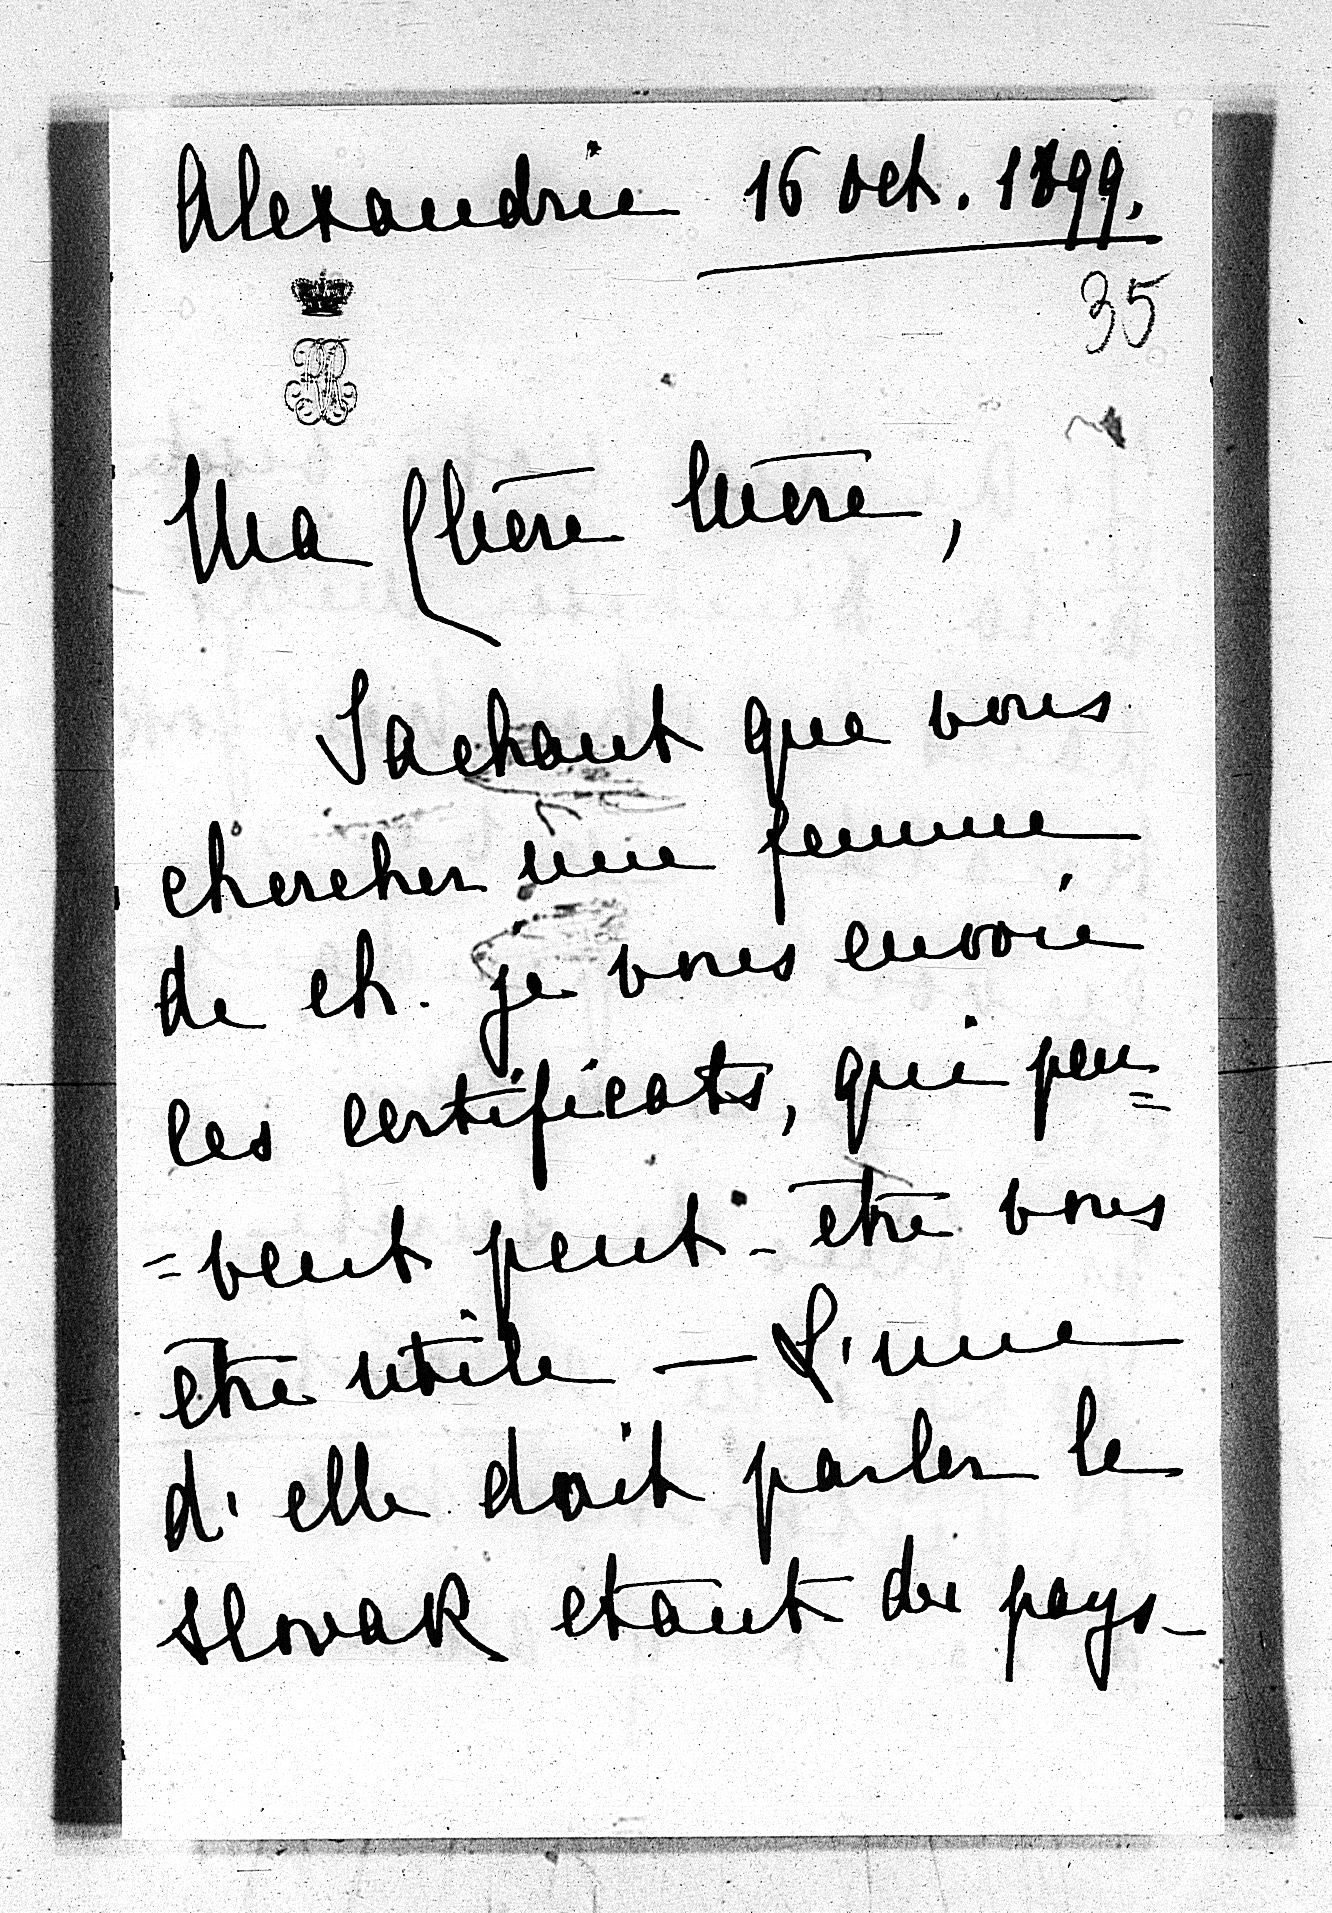 Alexandrie 16 oct. 1899.
35
Ma Chère Mère,
Sachant que vous
chercher une femme
de ch. je vous envoie
les certificats, qui peu=
=vent peut-être vous
être utile — L'une
d'elle doit parler le
slovak etant du pays_